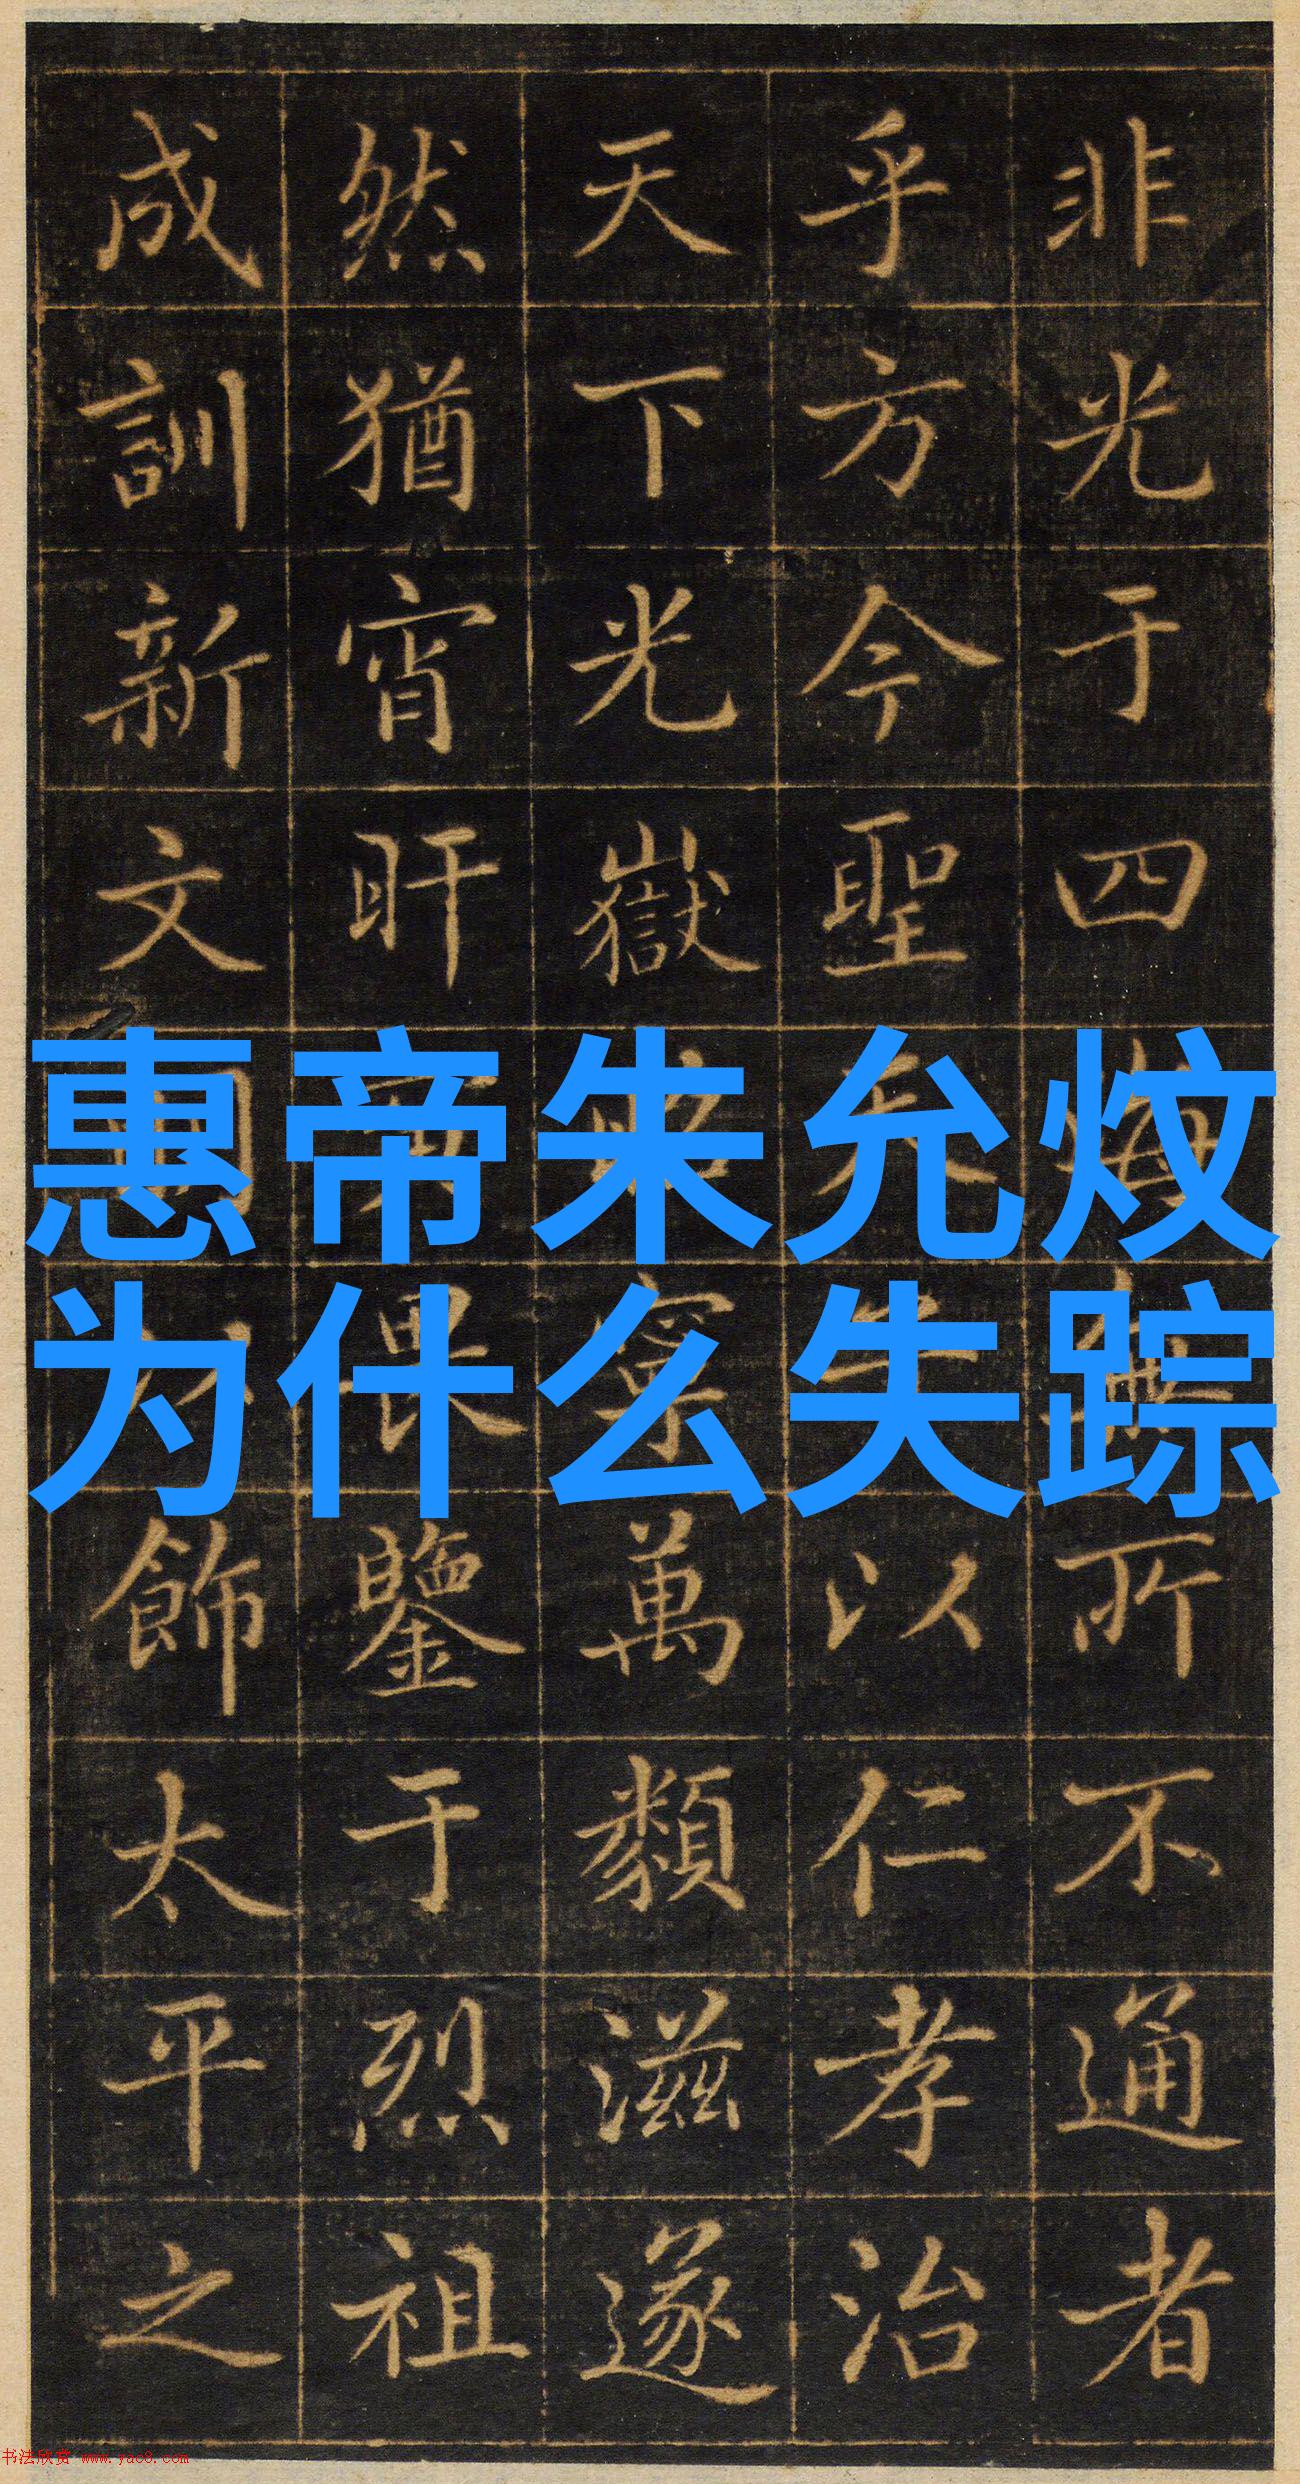 惠帝朱允炆
为什么失踪
非光于四海無所不通者
乎方今聖天子以仁孝治
天下光嶽寧萬類滋遂
然猶宵旰畏鑒于烈祖
成訓新文以飾太平之
书法欣赏 www.yac8.com